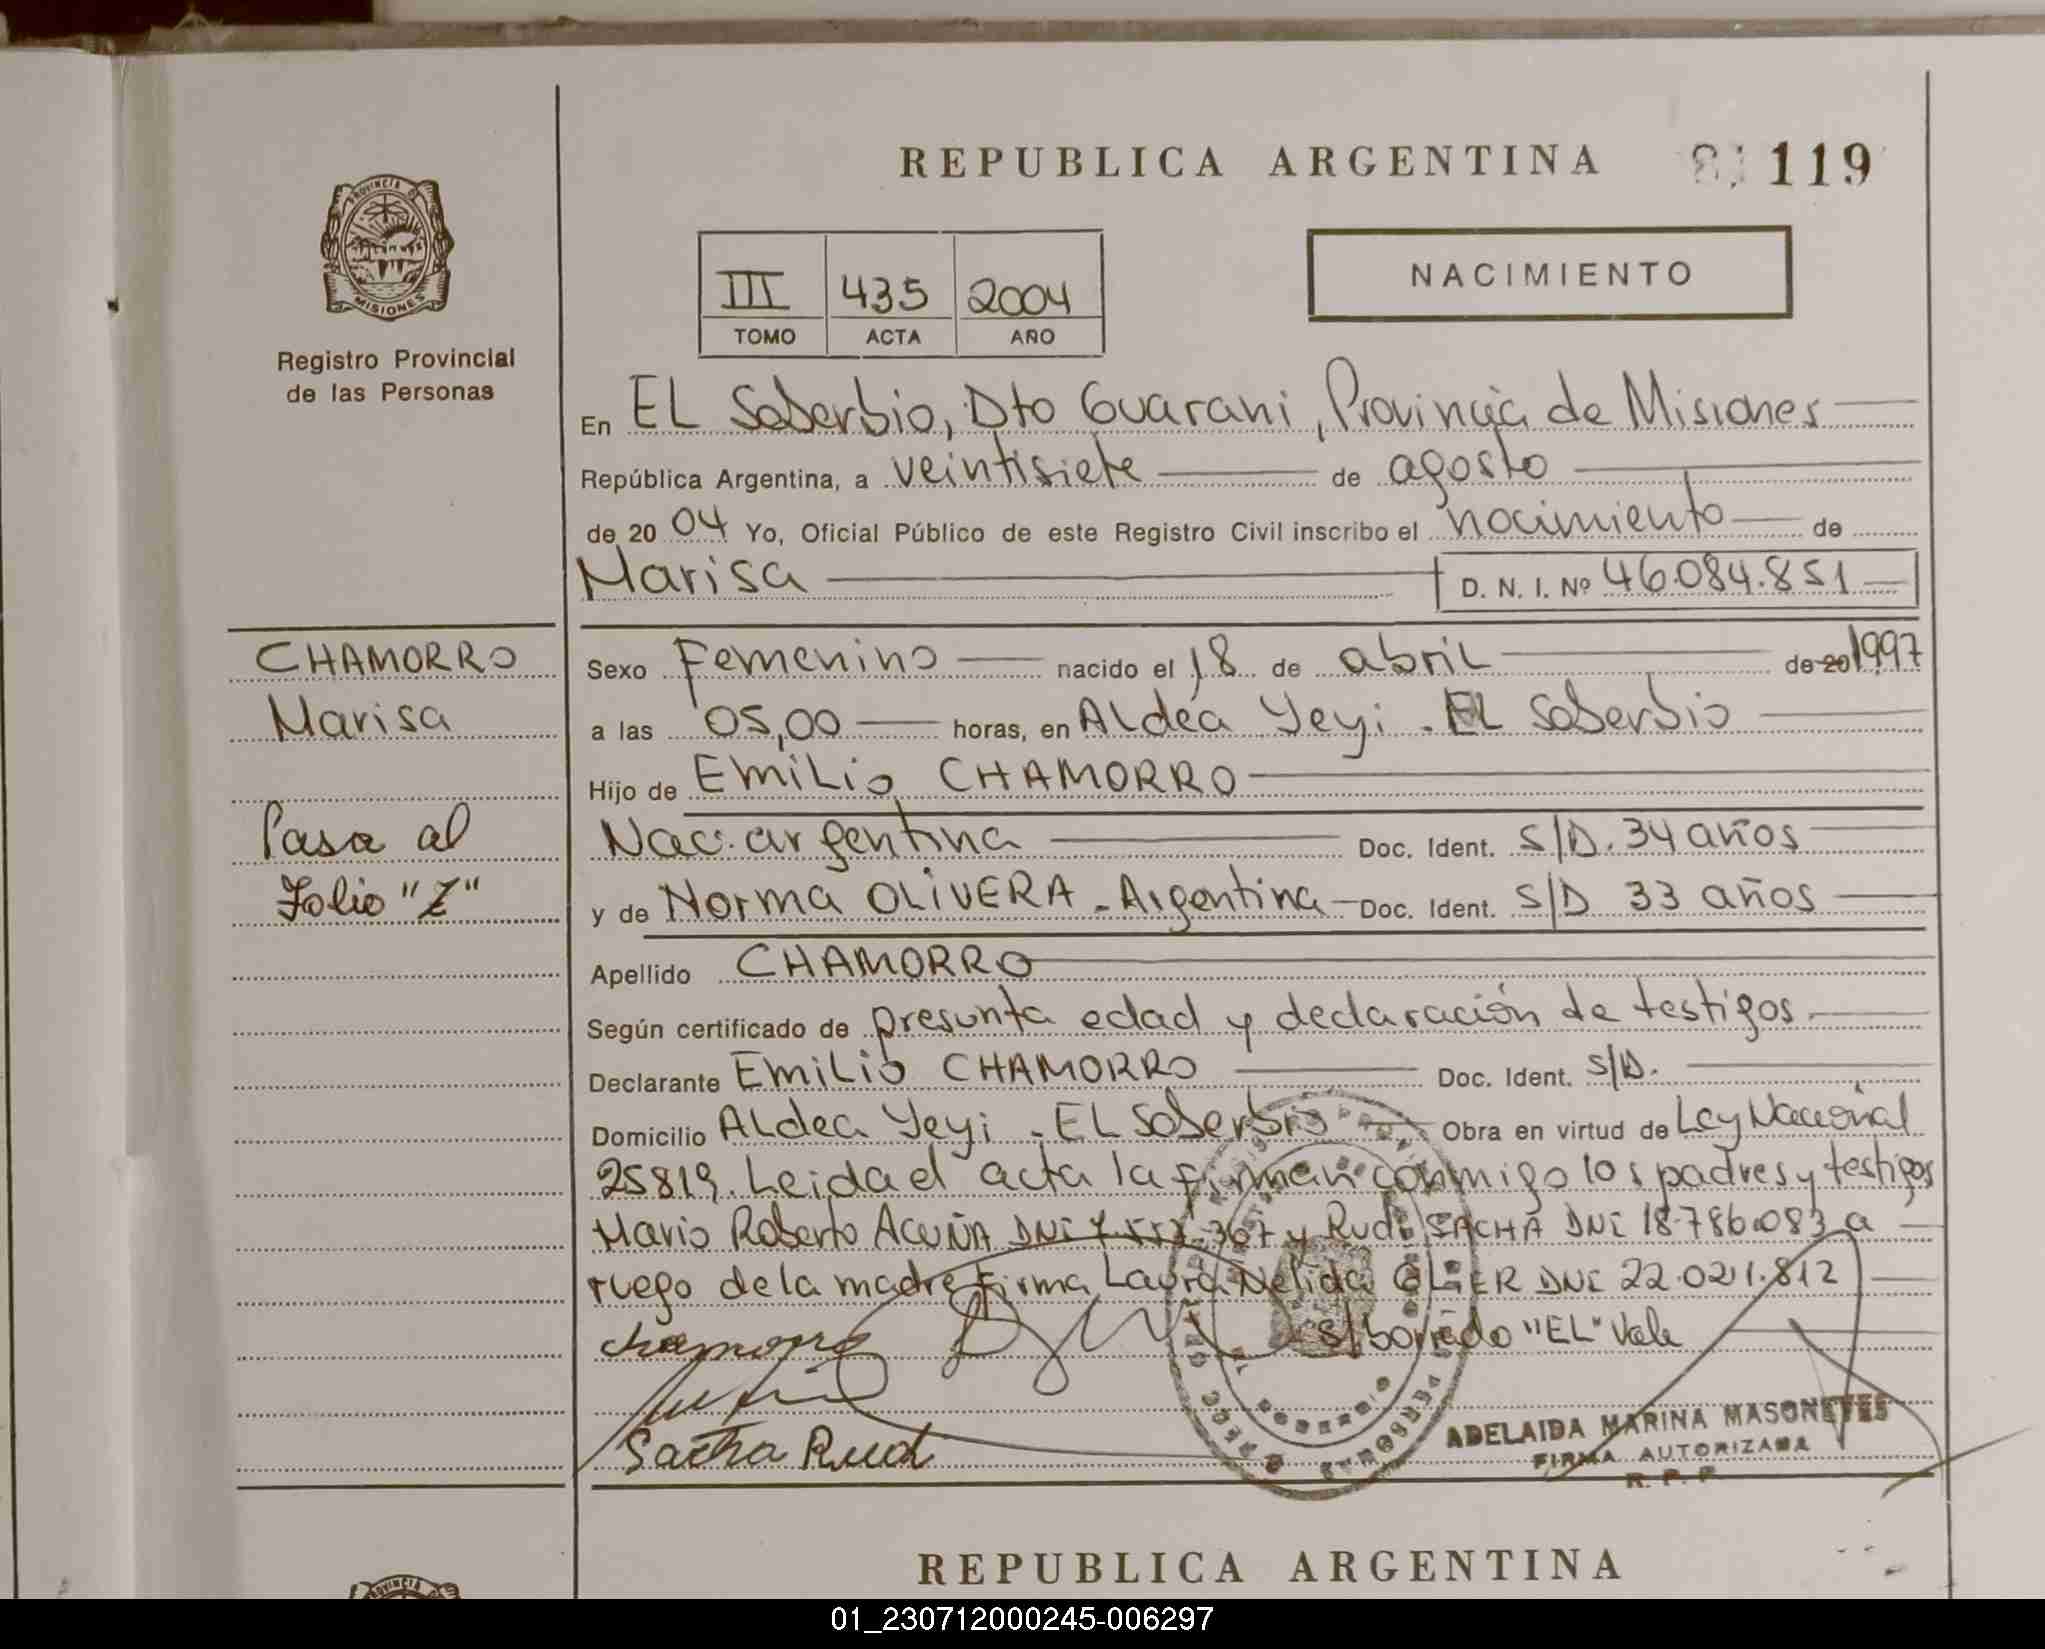 REPUBLICA ARGENTINA 119
PROVINCIA DE
MISIONES
Registro Provincial
de las Personas
III 435 2004
TOMO ACTA AÑO
NACIMIENTO
En EL Soberbio, Dto Guarani, Provincia de Misiones
República Argentina, a veintisiete de agosto
de 2004 Yo, Oficial Público de este Registro Civil inscribo el nacimiento de
Marisa D. N. I. Nº 46.084.851
CHAMORRO
Marisa
Pasa al
Folio "Z"
Sexo Femenino nacido el 18 de abril de 20 1997
a las 05,00 horas, en Aldea Yeyi - EL Soberbio
Hijo de Emilio CHAMORRO
Nac. argentina Doc. Ident. S/D. 34 años
y de Norma OLIVERA - Argentina Doc. Ident. S/D 33 años
Apellido CHAMORRO
Según certificado de presunta edad y declaración de testigos
Declarante Emilio CHAMORRO Doc. Ident. S/D.
Domicilio Aldea Yeyi - EL Soberbio Obra en virtud de Ley Nacional
25819. Leida el acta la firman conmigo los padres y testigos
Mario Roberto ACUÑA DNI 367 y Rudi SACHA DNI 18.786.083 a
ruego de la madre firma Laura Nelida DNI 22.021.812
chamorro s/borrado "EL" Vale
Sacha Rudi
ADELAIDA MARINA MASONETES
FIRMA AUTORIZADA
R. P. P
REPUBLICA ARGENTINA
01_230712000245-006297